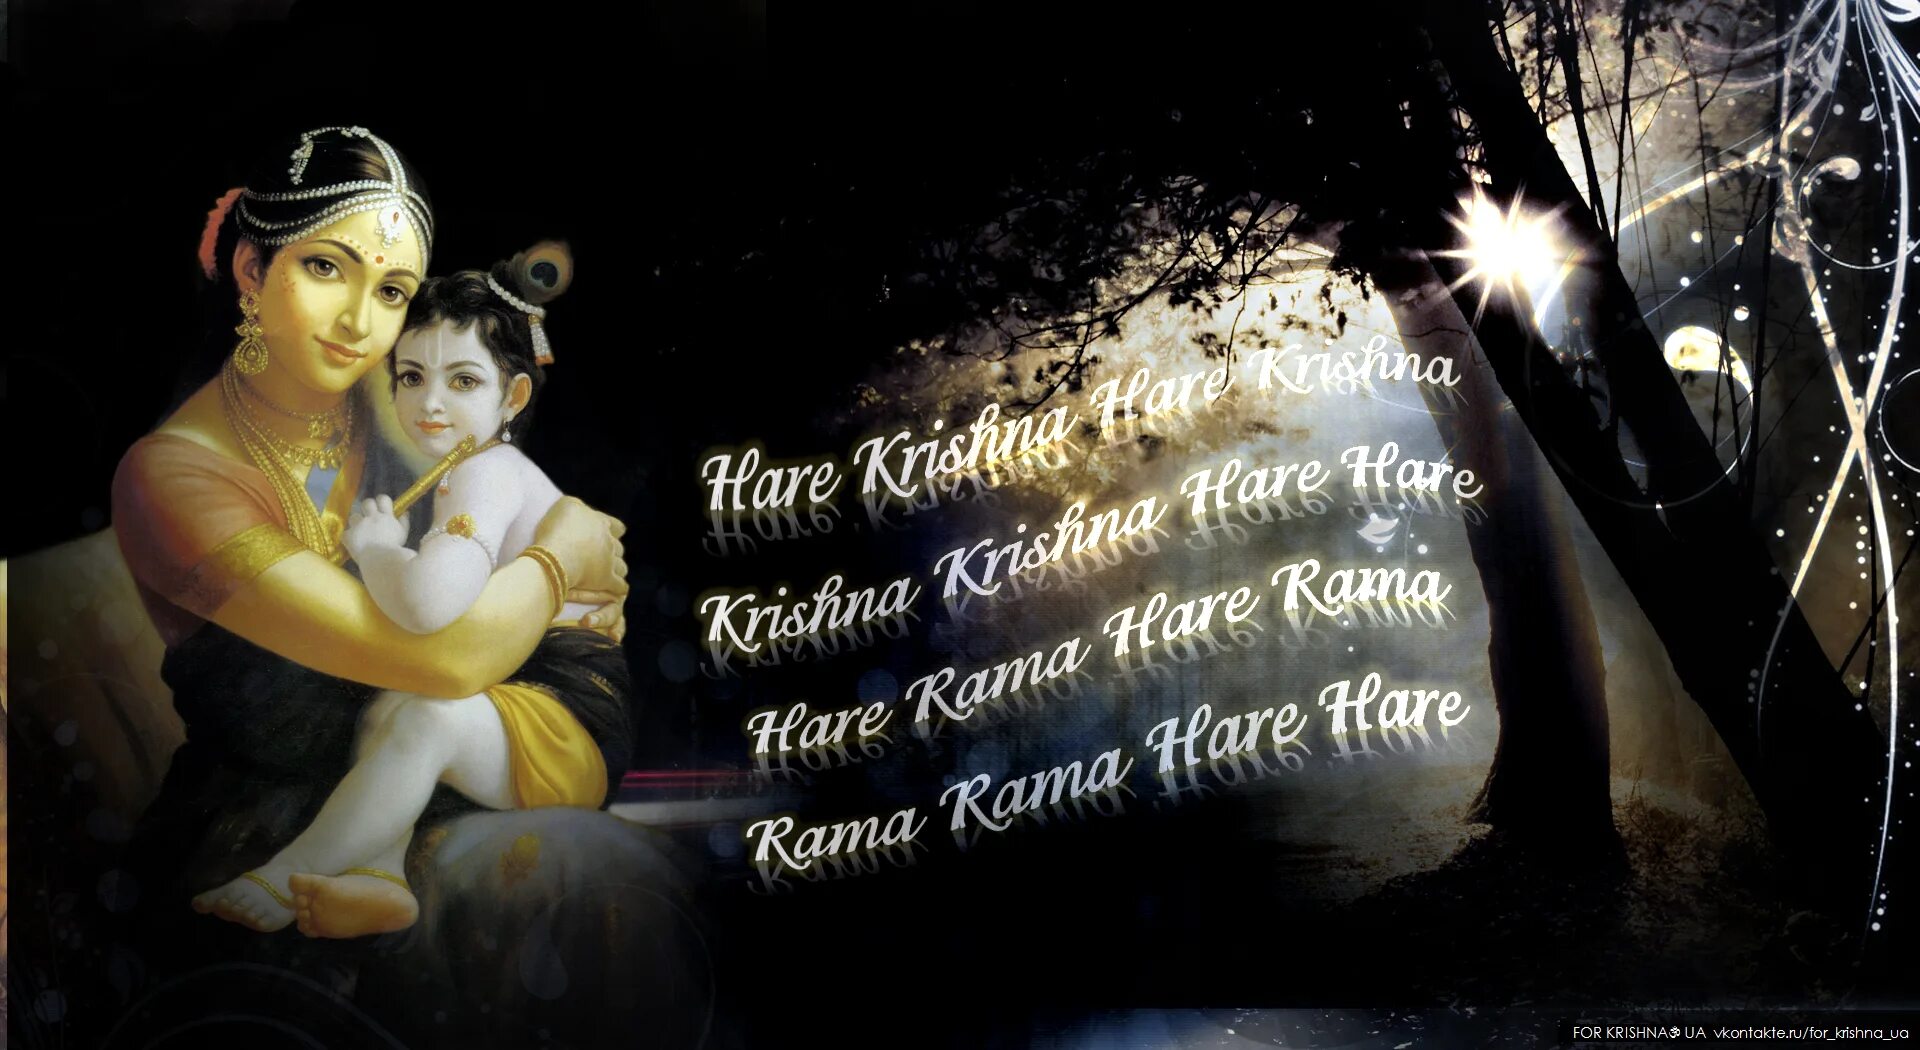 Hare Krishna Hare Krishna
Krishna Krishna Hare Hare
Hare Rama Hare Rama
Rama Rama Hare Hare
FOR KRISHNAॐ UA vkontakte.ru/for_krishna_ua